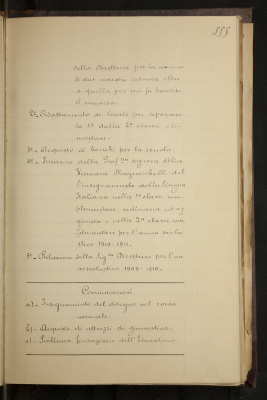 555
della Direttrice per la nomina
di due maestre interne oltre
a quella per cui fu bandito
il concorso.
2º- Adattamento di locale per separare
la 1ª dalla 2ª classe ele-
mentare.
3º- Acquisto di banchi per la scuola.
4º- Incarico alla Prof.ssa signora
dell'insegnamento della lingua
Italiana nella 1ª classe com-
plementare ordinaria ed ag-
giunta e nella 2ª classe com-
plementare per l'anno scola-
stico 1910-1911.
5º- Relazione della Sig.ra Direttrice per l'an-
no scolastico 1909-1910.
Comunicazioni
a)- Insegnamento del disegno nel corso
normale.
b)- Acquisto di attrezzi di ginnastica.
c)- Problema finanziario dell'Educatorio.